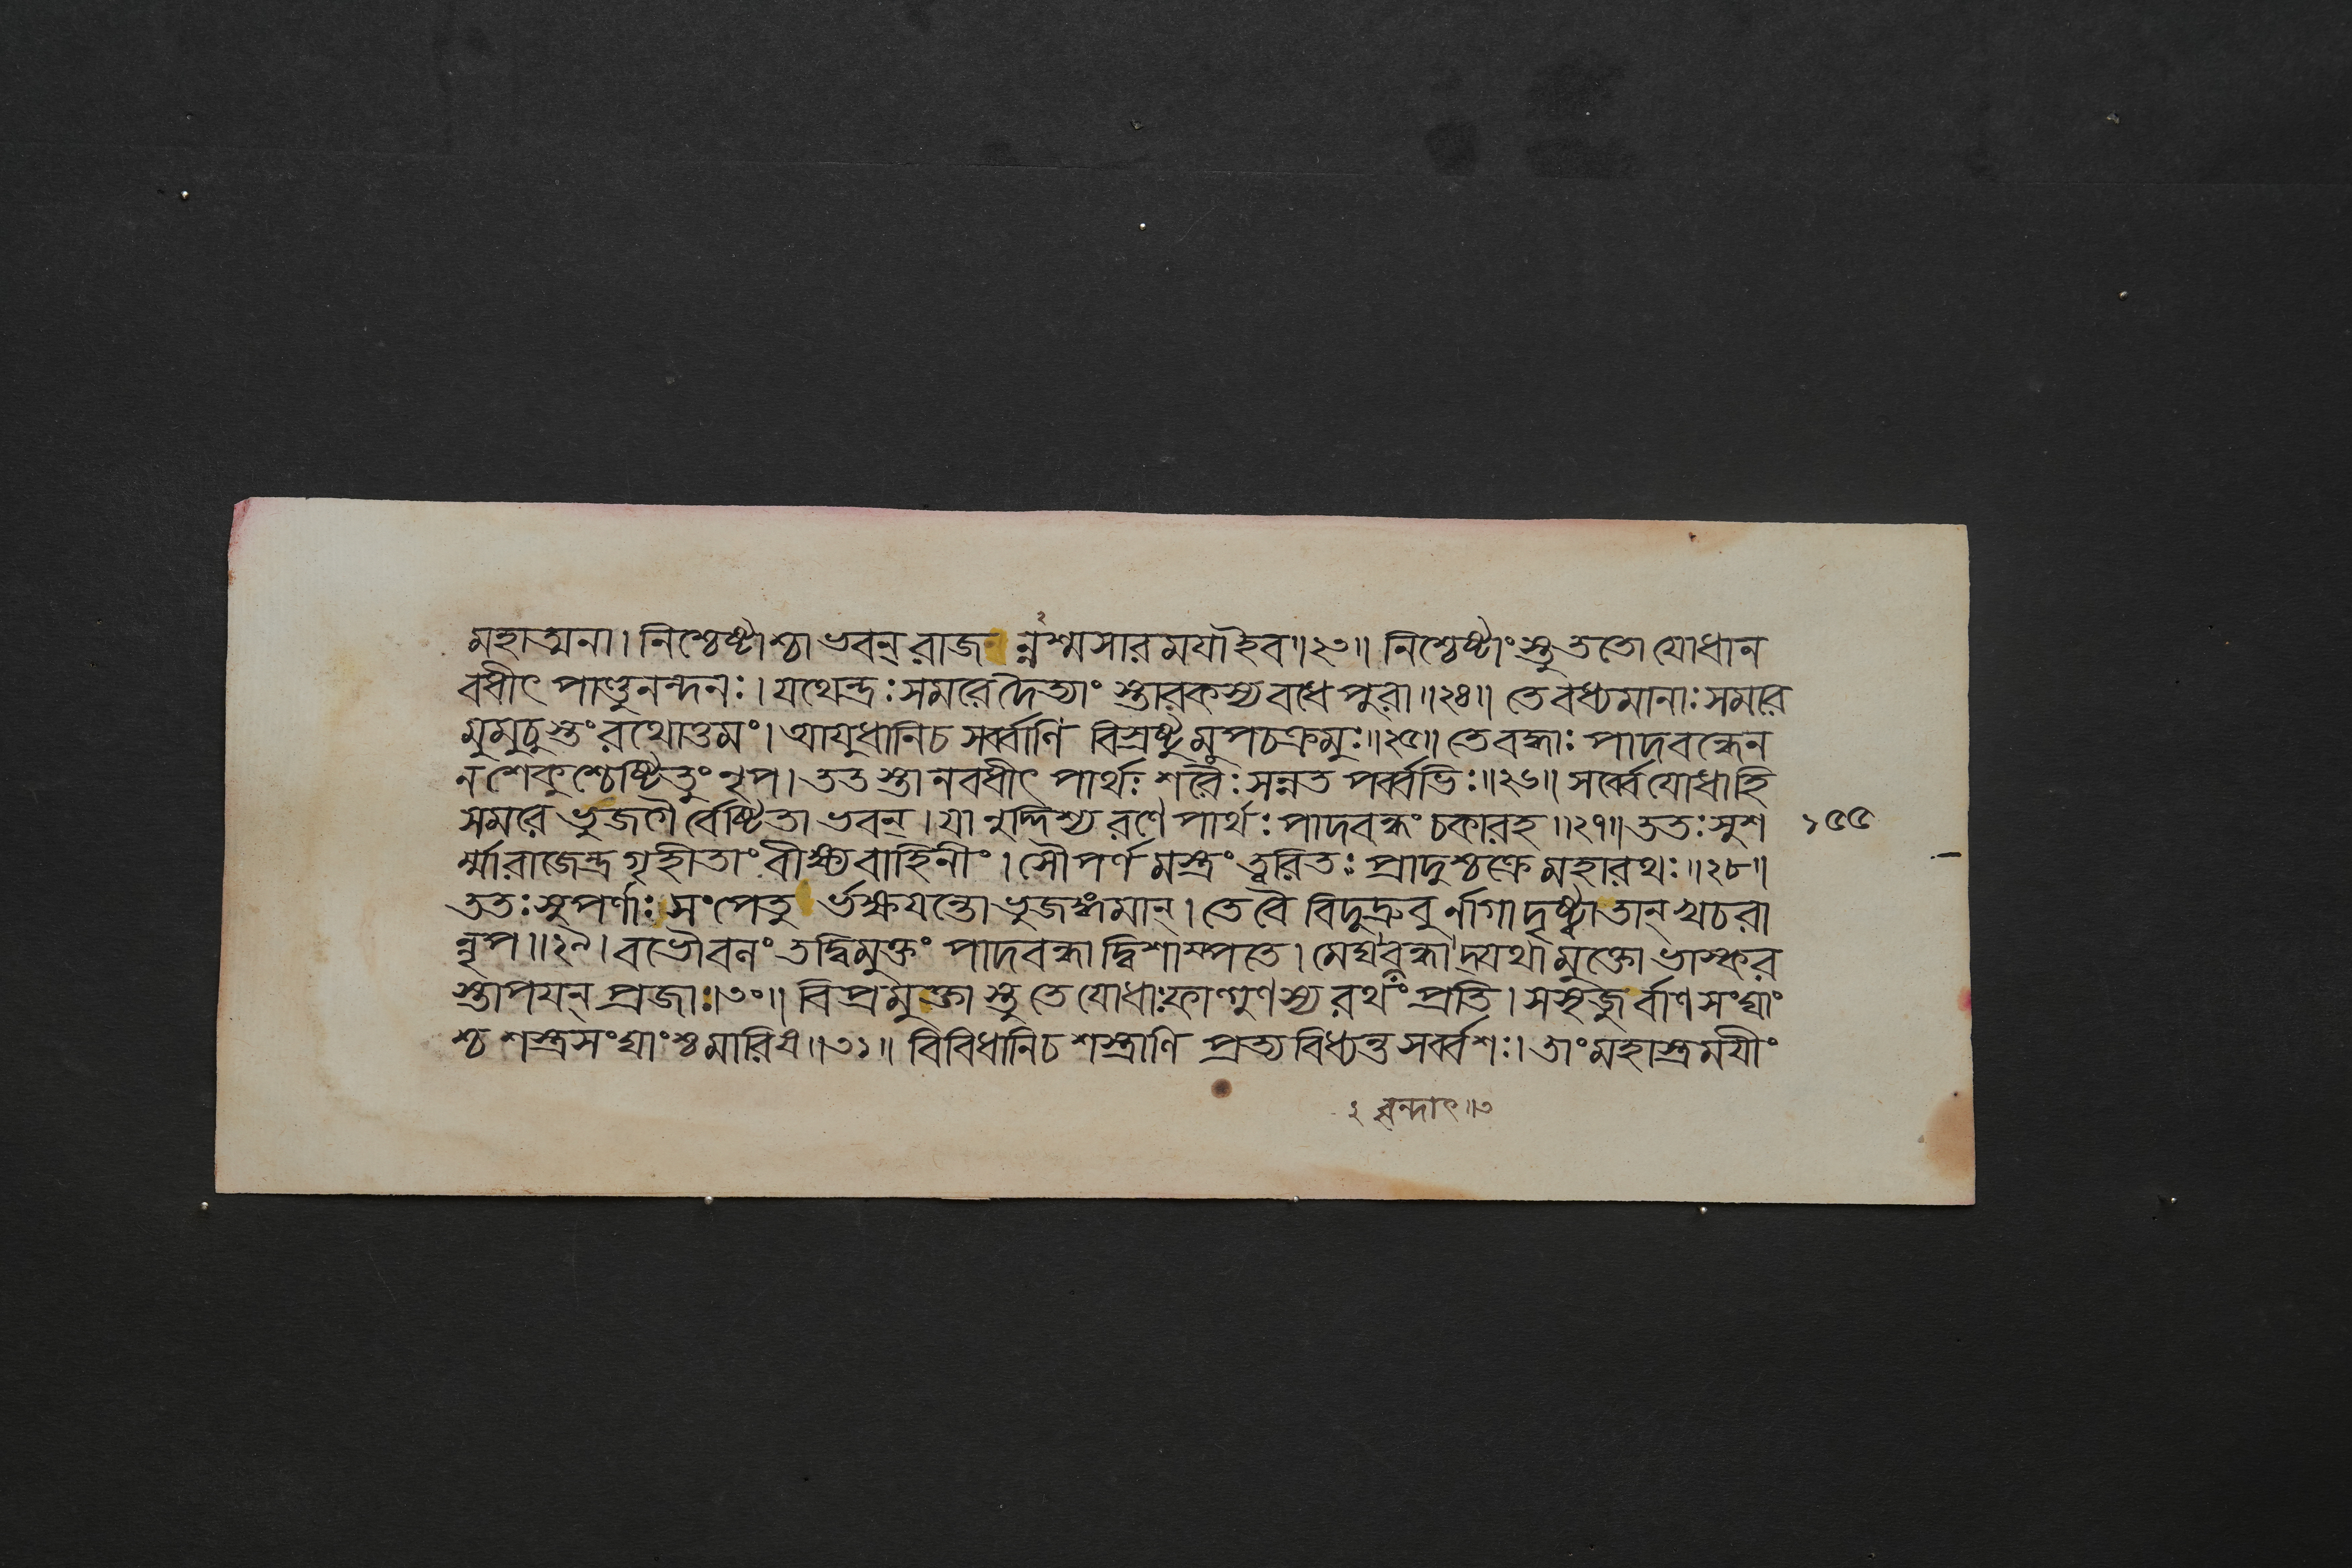 মহাত্মনা। নিশ্চেষ্টাশ্চা ভবন্ রাজ ন্নশ্মসারময়া ইব॥২৩॥ নিশ্চেষ্টাংস্তু ততো যোধান
বধীৎ পাণ্ডুনন্দনঃ। যথেন্দ্রঃ সমরে দৈত্যাং স্তারকস্য বধে পুরা॥২৪॥ তে বধ্যমানাঃ সমরে
মুমুচুস্তং রথোত্তমং। আয়ুধানিচ সর্ব্বাণি বিস্রষ্টুমুপচক্রমুঃ॥২৫॥ তে বদ্ধাঃ পাদবন্ধেন
ন শেকুশ্চেষ্টিতুং নৃপ। তত স্তানবধীৎ পার্থঃ শরৈঃ সন্নত পর্ব্বভিঃ॥২৬॥ সর্ব্বে যোধাহি
সমরে ভুজগৈ র্বেষ্টিতা ভবন্। যানুদ্দিশ্য রণে পার্থঃ পাদবন্ধং চকারহ॥২৭॥ ততঃ সুশ ১৫৫
র্ম্মা রাজেন্দ্র গৃহীতাং বীক্ষ্য বাহিনীং। সৌপর্ণ মস্ত্রং ত্বরিতঃ প্রাদুশ্চক্রে মহারথঃ॥২৮॥
ততঃ সুপর্ণাঃ সংপেতু র্ভক্ষয়ন্তো ভুজঙ্গমান্। তে বৈ বিদুদ্রুবু র্নাগা দৃষ্ট্বা তান্ খচরা
ন্নৃপ॥২৯। বভৌ বনং তদ্বিমুক্তং পাদবন্ধা দ্বিশাম্পতে। মেঘবন্ধাদ্যথা মুক্তো ভাস্কর
স্তাপয়ন্ প্রজাঃ।৩০॥ বিপ্রমুক্তা স্তু তে যোধাঃ ফাল্গুণস্য রথং প্রতি। সসৃজু র্বাণ সংঘাং
শ্চ শস্ত্রসংঘাংশ্চ মারিষ॥৩১॥ বিবিধানিচ শস্ত্রাণি প্রত্যবিধ্যন্ত সর্ব্বশঃ। তাং মহাস্ত্রময়ীং